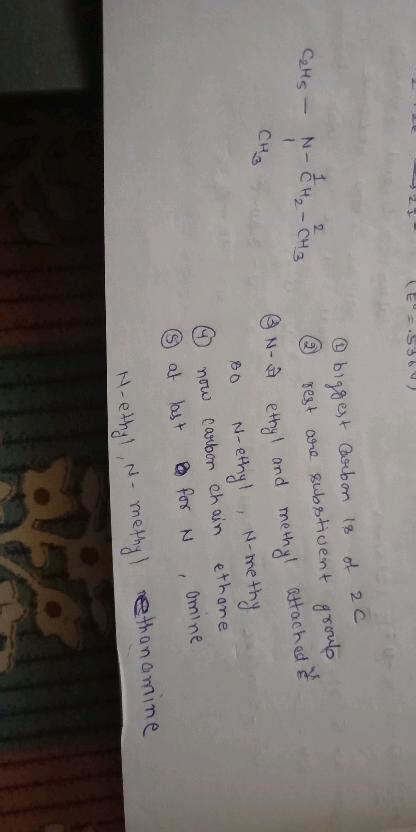 (E° = .536V)
C2H5 — N – CH2 – CH3
1 2
CH3
① biggest Carbon is of 2C
② rest are substivent group
③ N- ethyl and methyl attached
so N-ethyl, N-methy
④ now carbon chain ethane
⑤ at last for N, amine
N-ethyl, N-methyl ethanamine